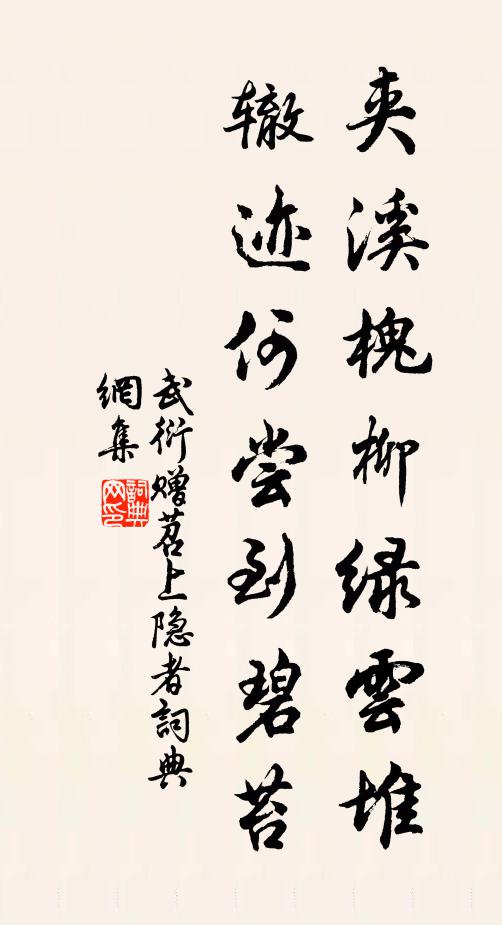 夹溪槐柳绿雲堆
辙迹何尝到碧苔
武衍赠苕上隐者詞典
網集
詞典
网印